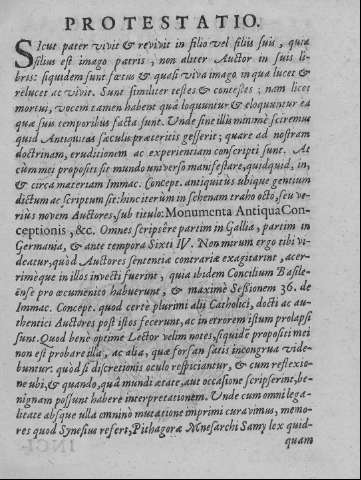 PROTESTATIO.
Sicut pater vivit & revivit in filio vel filiis suis, quia
filius est imago patris, non aliter Auctor in suis li-
bris: siquidem sunt fœtus & quasi viva imago in qua lucet &
relucet ac vivit. Sunt similiter testes & contestes; nam licet
mortui, vocem tamen habent quâ loquuntur & eloquuntur ea
quæ suis temporibus facta sunt. Unde sine illis minimè sciremus
quid Antiquitas sæculis præteritis gesserit; quare ad nostram
doctrinam, eruditionem ac experientiam conscripti sunt. At
cùm mei propositi sit mundo universo manifestare, quidquid, in,
& circa materiam Immac. Concept. antiquitùs ubique gentium
dictum ac scriptum sit: hinc iterum in scenam traho octo, seu ve-
riùs novem Auctores, sub titulo: Monumenta Antiqua Con-
ceptionis, &c. Omnes scripsêre partim in Gallia, partim in
Germania, & ante tempora Sixti IV. Non mirum ergo tibi vi-
deatur, quòd Auctores sententiæ contrariæ exagitarint, acer-
rimèque in illos invecti fuerint, quia ibidem Concilium Basile-
ënse pro œcumenico habuerunt, & maximè Sessionem 36. de
Immac. Concept. quod certè plurimi alii Catholici, docti ac au-
thentici Auctores post istos fecerunt, ac in errorem istum prolapsi
sunt. Quod bene optime Lector velim notes, siquidem propositi mei
non est probare illa, ac alia, quæ forsan satis incongrua vide-
buntur: quòd si discretionis oculo respiciantur, & cum reflexio-
ne ubi, & quando, quâ mundi ætate, aut occasione scripserint, be-
nignam possunt habere interpretationem. Unde cum omni lega-
litate absque ulla omninò mutatione imprimi curavimus, memo-
res quod Synesius refert, Pithagoræ Mnesarchi Samy lex quid-
quam